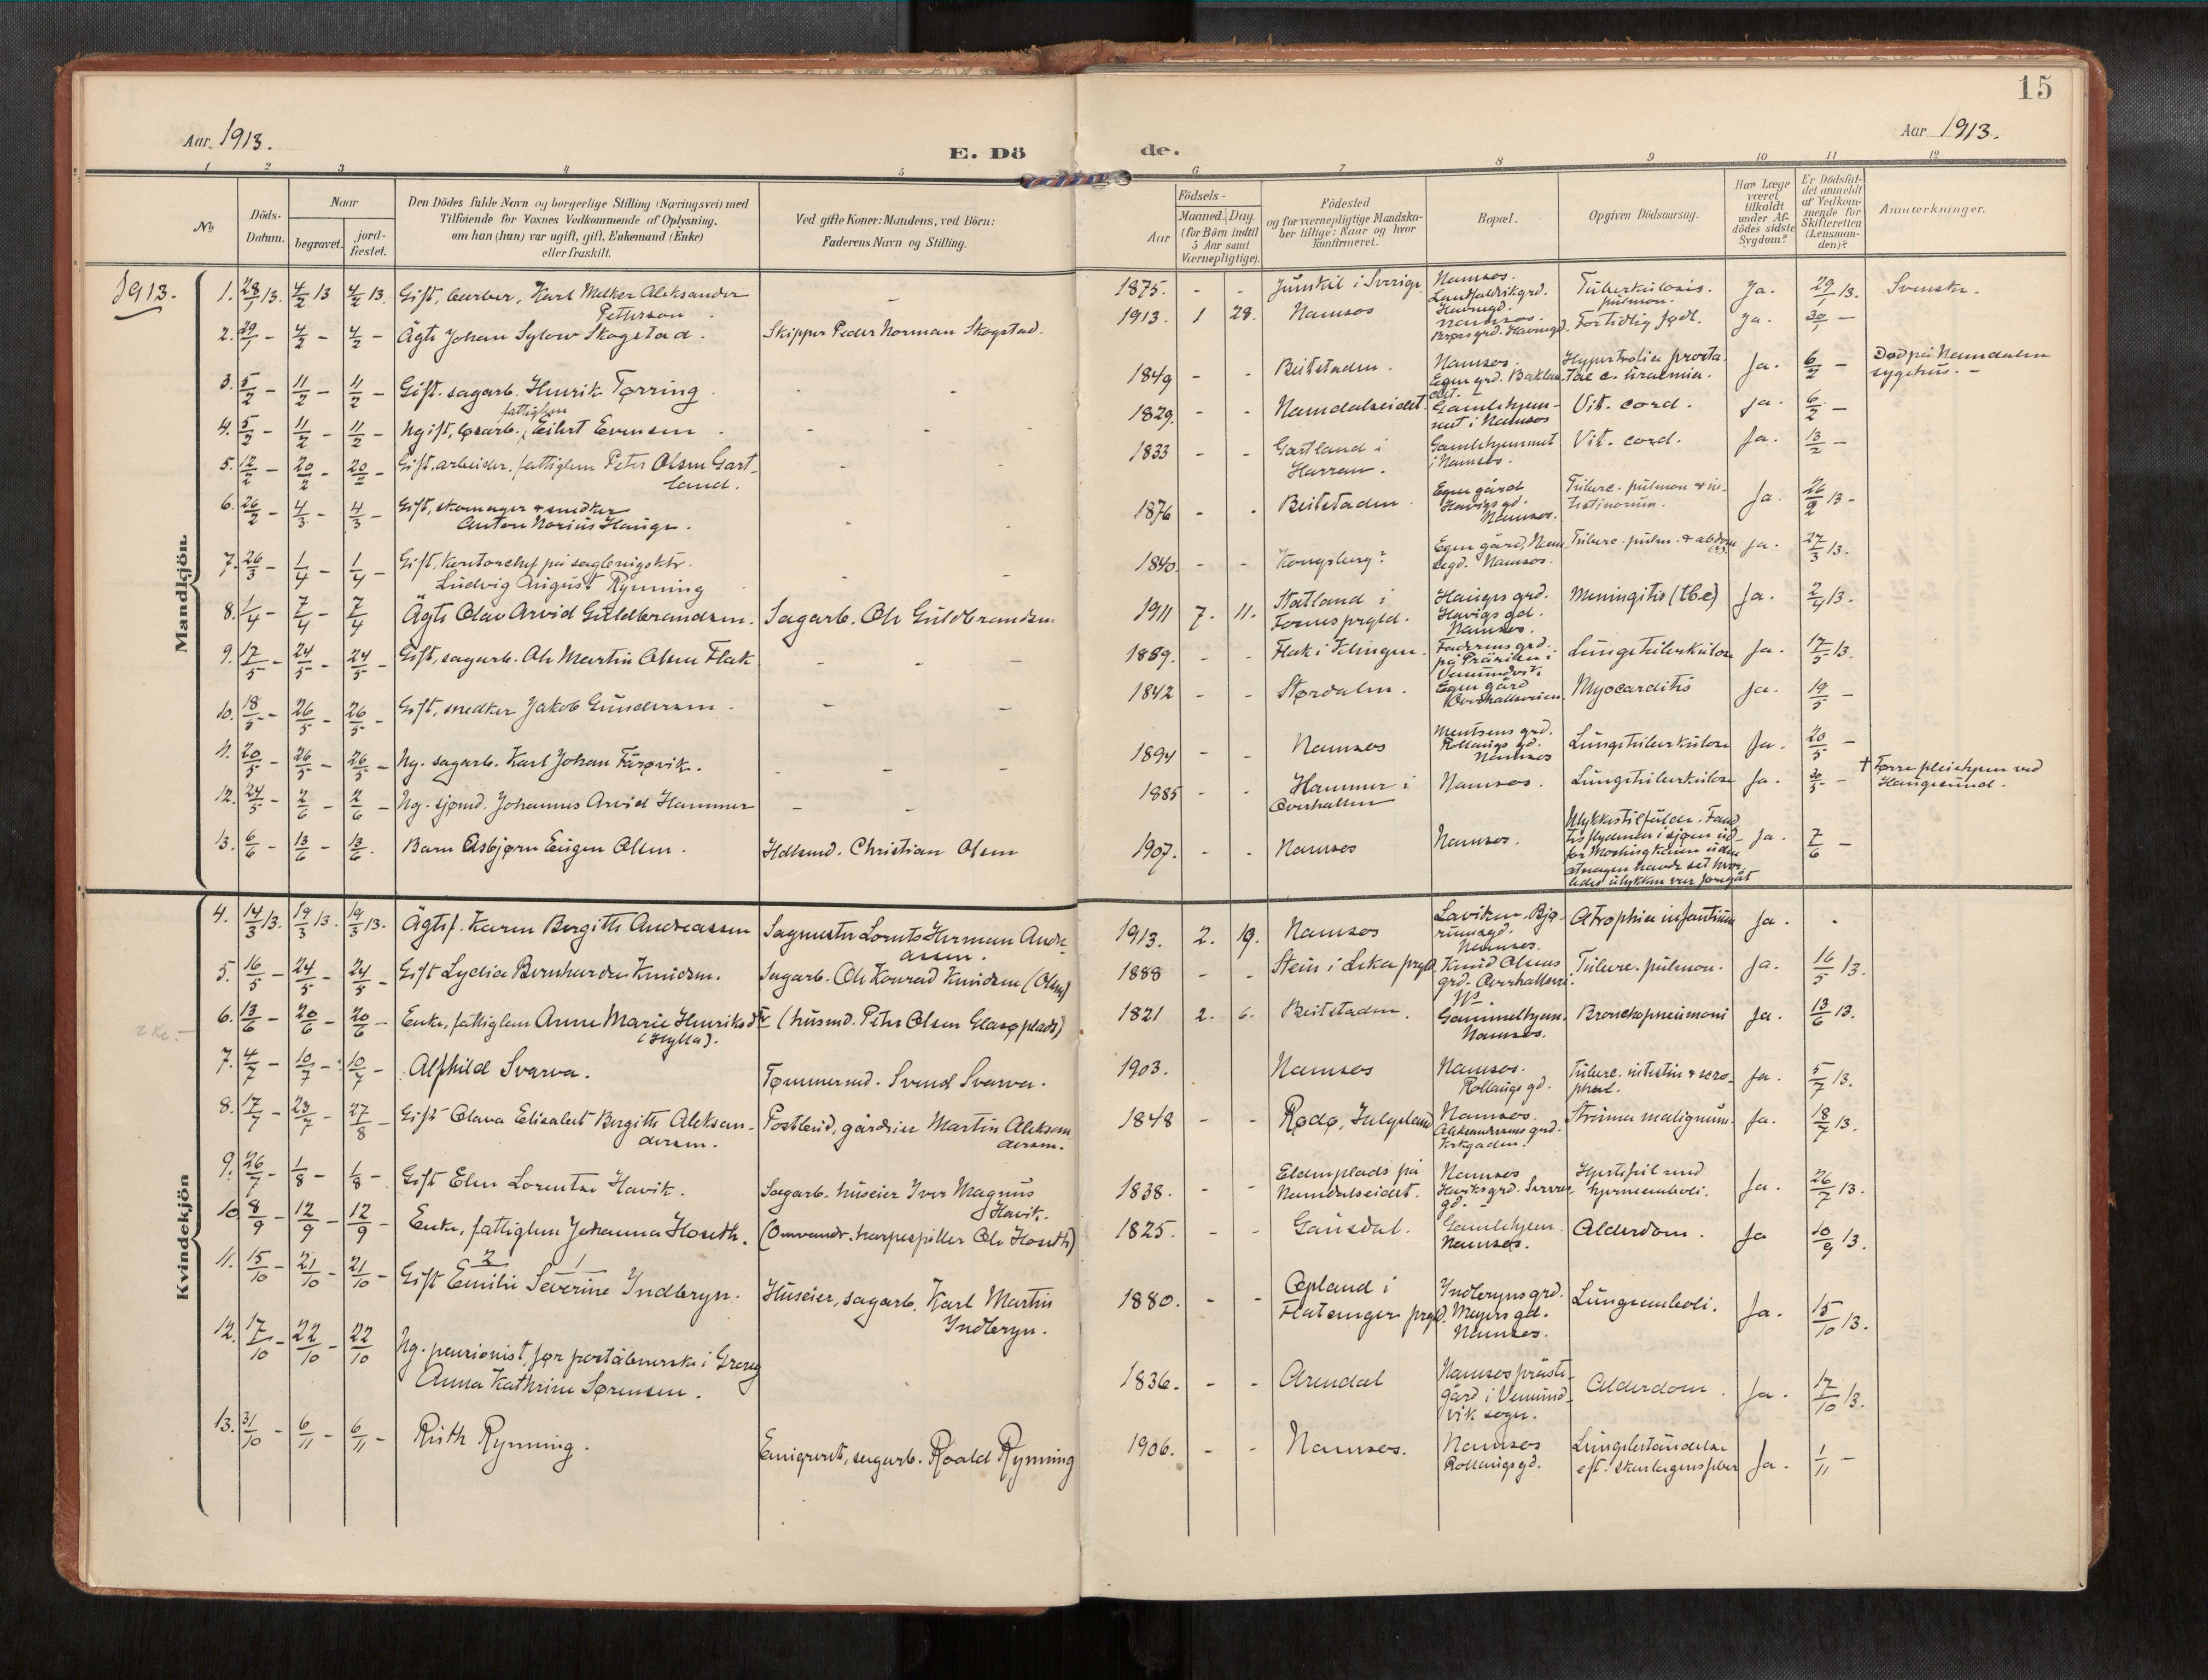 15
Aar 1913.
E. Dö
de.
Aar 1913.
1 2 3 4 5 6 7 8 9 10 11 12
No
Döds-
Datum.
Naar
begravet.
jord-
fæstet.
Den Dödes fulde Navn og borgerlige Stilling (Næringsvei) med
Tilföiende for Voxnes Vedkommende af Oplysning,
om han (hun) var ugift, gift, Enkemand (Enke)
eller fraskilt.
Ved gifte Koner: Mandens, ved Börn:
Faderens Navn og Stilling.
Födsels-
Aar
Maaned. Dag.
(for Börn indtil
5 Aar samt
Værnepligtige).
Födested
og for værnepligtige Mandska-
ber tillige: Naar og hvor
Konfirmeret.
Bopæl.
Opgiven Dödsaarsag.
Har Læge
været
tilkaldt
under Af-
dödes sidste
Sygdom?
Er Dödsfal-
det anmeldt
af Vedkom-
mende for
Skifteretten
(Lensman-
den)?
Anmerkninger.
1913.
Mandkjön.
1. 28/1 13. 4/2 13 4/2 13. Gift, barber, Karl Melker Aleksander
Petterson. - 1875. - - Namsos. Tüberkülosis. pülmon. Ja. 29/1 13. Svenske.
2. 29/1 - 4/2 - 4/2 - Ägte Johan Sylow Skogstad. Skipper Peder Norman Skogstad. 1913. 1 29. Namsos Namsos. Havnegd. Fortidlig født. Ja. 30/1 -
3. 5/2 - 11/2 - 11/2 - Gift. sagarb. Henrik Tørring - - 1849 - - Beitstaden. Namsos. Egen grd. Baklan-
det. Hypertrofia prosta-
tae c. üraemia. Ja. 6/2 - Død på Namdalen
sygehus. -
4. 5/2 - 11/2 - 11/2 - Ugift, løsarb., fattiglem Eilert Evensen. - - 1829. - - Namdalseidet. Gamlehjem-
met i Namsos Vit. cord. Ja. 6/2 -
5. 12/2 - 20/2 - 20/2 - Gift. arbeider. fattiglem Peter Olsen Gart-
land. - - 1833 - - Gartland i
Harran. Gamlehjemmet
i Namsos. Vit. cord. Ja. 13/2 -
6. 26/2 - 4/3 - 4/3 - Gift, skomager & snedker
Anton Norius Hauge. - - 1876 - - Beitstaden. Egen gård
Havigs gd.
Namsos. Tüberc. pülmon & in-
testinorum. Ja. 26/2 13 -
7. 26/3 - 1/4 - 1/4 - Gift, kontorchef på
Ludvig August Rynning - - 1840. - - Kongsberg? Egen gård,
Namsos. Tüberc. pülm. & abdom Ja. 27/3 13.
8. 1/4 - 7/4 - 7/4 Ägte Olav Arvid Güldbrandsen. Sagarb. Ole Güldbrandsen. 1911 7. 11. Statland i
Fosnes prgld. Hauges grd.
Havigs gd.
Namsos. Meningitis (tbc) Ja. 2/4 13.
9. 17/5 - 24/5 - 24/5 - Gift, sagarb. Ole Martin Olsen Flak - - - 1889. - - Flak i Klingen. Faderens grd.
på Prärien i
Vemundvik. Lüngetüberkülose Ja. 17/5 13.
10. 18/5 - 26/5 - 26/5 - Gift, snedker Jakob Gündersen. - - 1842 - - Størdalen. Egen gård
Overhallsveien. Myocarditis Ja. 19/5 -
11. 20/5 - 26/5 - 26/5 - Ug. sagarb. Karl Johan Färøvik. - - - 1894 - - Namsos Mentsens grd.
Rollaugs gd.
Namsos Lüngetüberkülose Ja. 20/5 -
12. 24/5 - 2/6 - 2/6 - Ug. sjømd. Johannes Arvid Hammer - - 1885 - - Hammer i
Overhallen Namsos. Lüngetüberkülose Ja. 30/5 - † Førre pleiehjem ved
Haugesund.
13. 6/6 - 13/6 - 13/6. Barn Asbjørn Eügen Olsen. Hdlsmd. Christian Olsen 1907. - - Namsos Namsos. Ülykkestilfülde. Fand-
tes flydende i sjøen üd-
for uden
at nogen havde set hvor-
ledes ülykken var foregåt Ja. 7/6 -
Kvindekjön
4. 14/3 13. 19/3 13. 19/3 13. Ägtef. Karen Bergitte Andreassen Sagmester Lorents Herman Andre-
assen. 1913. 2. 19. Namsos Laviken. Bjø-
rumsgd.
Namsos. Atrophia infantium Ja. -
5. 16/5 - 24/5 - 24/5 - Gift Lydia Bernharda Knudsen. Sagarb. Ole Konrad Knudsen (Olsen) 1888 - - Stein i Leka prgld. Knud Olsens
grd. Overhallsvn. Tüberc. pülmon. Ja. 16/5 13.
2 Kr. -
6. 13/6 - 20/6 - 20/6 - Enke, fattiglem Anne Marie Henriksdtr
(Hylla). (hüsmd. Peter Olsen Glasøplads) 1821 2. 6. Beitstaden. Gammelhjem.
Namsos. Bronchopneumoni Ja. 13/6 13.
7. 4/7 - 10/7 - 10/7 - Alfhild Svarva. Tømmermd. Svend Svarva. 1903. Namsos Namsos.
Rollaugs gd. Tüberc. intestin & sero- Ja. 5/7 13.
8. 17/7 - 23/7 - 27/8 - Gift Olava Elisabet Bergitte Aleksan-
dersen. Postbud, gårdeier Martin Aleksan-
dersen. 1848 - - Rødø, Helgeland Namsos.
Aleksandersens grd.
Kirkegaden. Strüma malignüm. Ja. 18/7 13.
9. 26/7 - 1/8 - 1/8 - Gift Elen Lorentse Havik. Sagarb. hüseier Iver Magnus
Havik. 1838. - - Eldenplads på
Namdalseidet. Namsos
Haviksgrd. Hjertefeil med
hjerneemboli. Ja. 26/7 13.
10 8/9 - 12/9 - 12/9 - Enke, fattiglem Johanna Hoseth. (Omvandr. harpespiller Ole Hoseth) 1825. - - Gausdal. Gamlehjem.
Namsos. Alderdom. Ja 10/9 13.
11. 15/10 - 21/10 - 21/10 - Gift Emilie Severine Indbryn. Hüseier, sagarb. Karl Martin
Indbryn. 1880. - - Opland i
Flatanger prgld. Indbryns grd.
Meyers gd.
Namsos. Lüngeemboli. Ja. 15/10 13.
12. 17/10 - 22/10 - 22/10 Ug. pensionist, før poståbnerske i Grong
Anna Kathrine Sørensen. 1836. - - Arendal Namsos præste-
gård i Vemund-
vik sogn. Alderdom. Ja. 17/10 13.
13. 31/10 - 6/11 - 6/11 - Rüth Rynning. Emigreret, sagarb. Roald Rynning 1906. - - Namsos. Namsos
Rollaugs gd. Lüngebetændelse
eft. skarlagensfeber Ja. 1/11 -